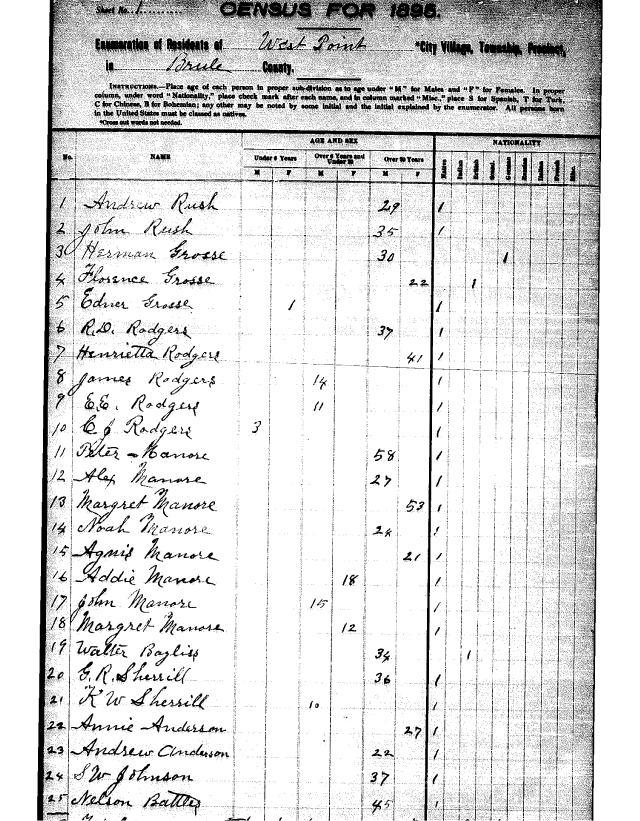 Sheet No. 1
CENSUS FOR 1895.
Enumeration of Residents of West Point *City Village, Township, Precinct,
in Brule County.
INSTRUCTIONS.—Place age of each person in proper sub-division as to age under "M" for Males and "F" for Females. In proper
column, under word "Nationality," place check mark after each name, and in column marked "Misc.," place S for Spanish, T for Turk,
C for Chinese, B for Bohemian; any other may be noted by some initial and the initial explained by the enumerator. All persons born
in the United States must be classed as natives.
*Cross out words not needed.
AGE AND SEX NATIONALITY
No. NAME Under 6 Years Over 6 Years and Under 20 Over 20 Years
M F M F M F
1 Andrew Rush 29 1
2 John Rush 35 1
3 Herman Grosse 30 1
4 Florence Grosse 22 1
5 Edner Grosse 1 1
6 R.D. Rodgers 37 1
7 Henrietta Rodgers 41 1
8 James Rodgers 14 1
9 E.E. Rodgers 11 1
10 C J Rodgers 3 1
11 Peter Manore 58 1
12 Alex Manore 27 1
13 Margret Manore 53 1
14 Noah Manore 24 1
15 Agnis Manore 21 1
16 Addie Manore 18 1
17 John Manore 15 1
18 Margret Manore 12 1
19 Walter Bayliss 34 1
20 G.R. Sherrill 36 1
21 K W Sherrill 10 1
22 Annie Anderson 27 1
23 Andrew Anderson 22 1
24 S W Johnson 37 1
25 Nelson Battles 45 1